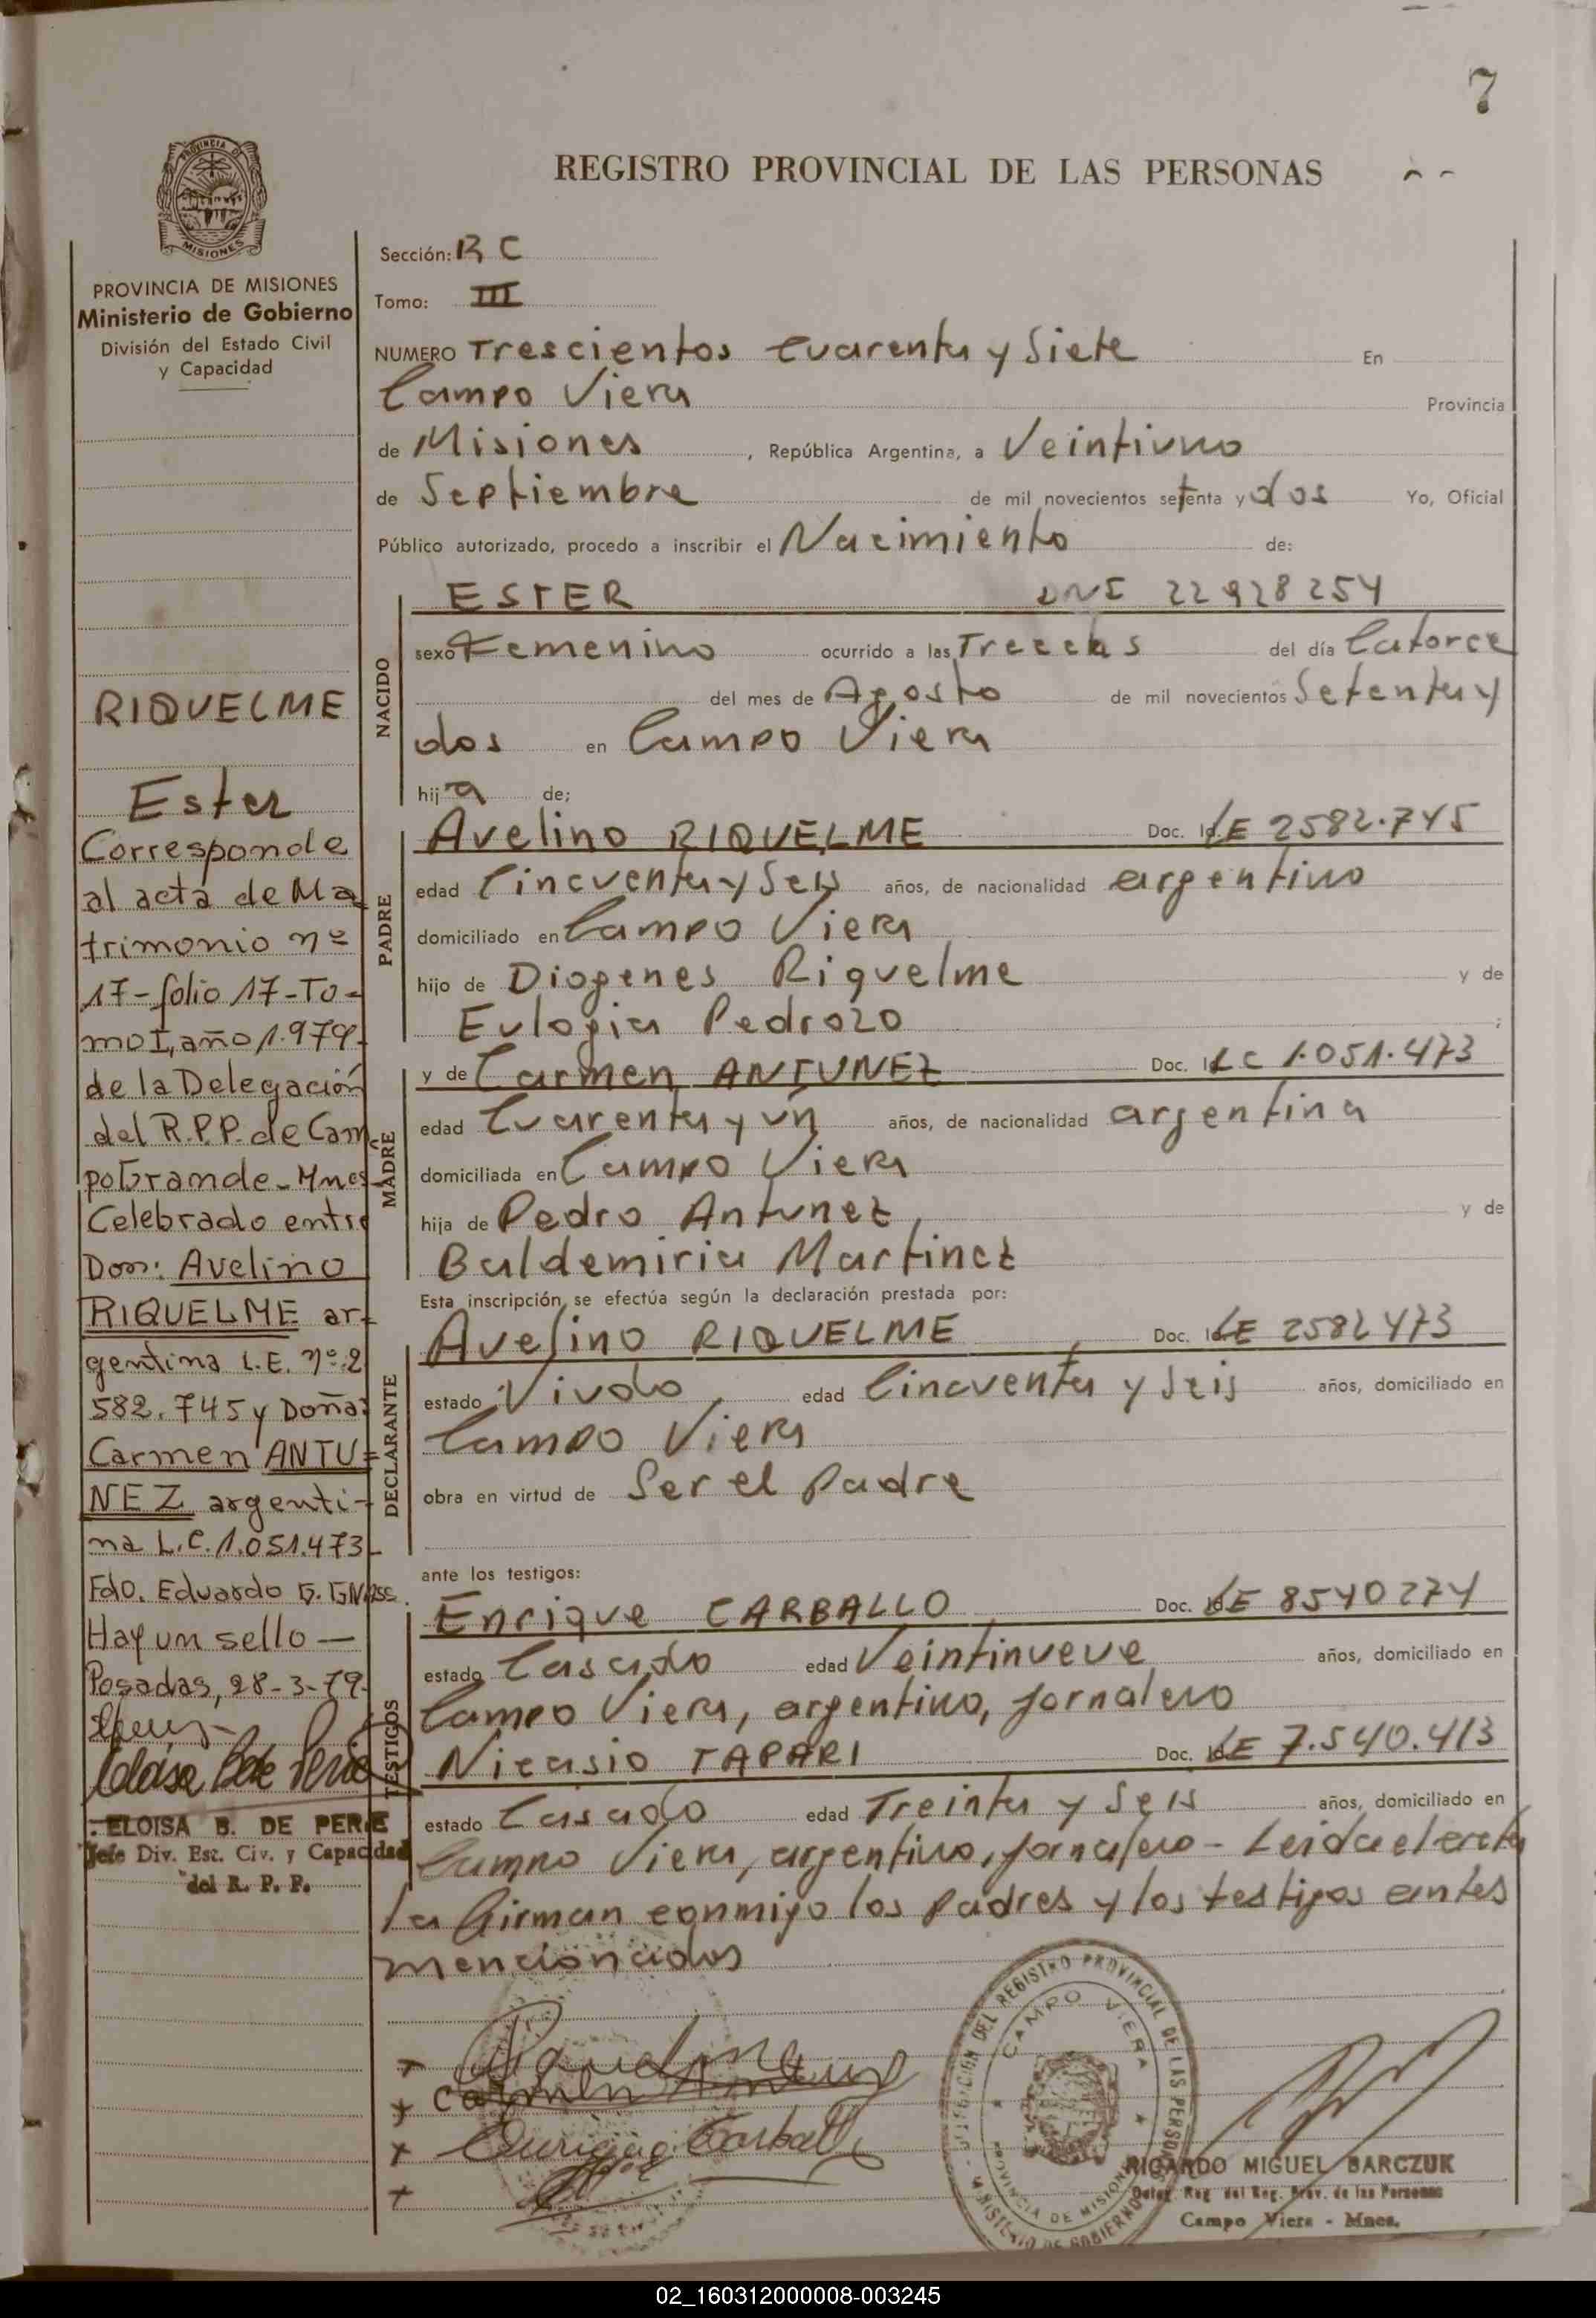 7
REGISTRO PROVINCIAL DE LAS PERSONAS
PROVINCIA DE
MISIONES
PROVINCIA DE MISIONES
Ministerio de Gobierno
División del Estado Civil
y Capacidad
RIQUELME
Ester
Corresponde
al acta de Ma
trimonio nº
17-folio 17-To-
mo I, año 1.979.
de la Delegación
del R.P.P. de Cam
po Grande-Mnes-
Celebrado entre
Don: Avelino
RIQUELME ar-
gentina L.E. nº 2
582.745 y Doña:
Carmen ANTU=
NEZ argenti-
na L.C. 1.051.473-
Fdo. Eduardo G.
Hay un sello—
Posadas, 28-3-79.
ELOISA B. DE PERIE
Jefe Div. Est. Civ. y Capacidad
del R. P. P.
Sección: R C
Tomo: III
NUMERO Trescientos Cuarenta y Siete En
Campo Viera Provincia
de Misiones, República Argentina, a Veintiuno
de Septiembre de mil novecientos setenta y dos Yo, Oficial
Público autorizado, procedo a inscribir el Nacimiento de:
NACIDO
ESTER DNI 22928254
sexo Femenino ocurrido a las Trece hs del día Catorce
del mes de Agosto de mil novecientos Setenta y
dos en Campo Viera
hija de;
PADRE
Avelino RIQUELME Doc. Id. LE 2582.745
edad Cincuenta y Seis años, de nacionalidad argentino
domiciliado en Campo Viera
hijo de Diogenes Riquelme y de
Eulogia Pedrozo ;
MADRE
y de Carmen ANTUNEZ Doc. LC 1.051.473
edad Cuarenta y un años, de nacionalidad argentina
domiciliada en Campo Viera
hija de Pedro Antunez, y de
Baldemiria Martinez
Esta inscripción se efectúa según la declaración prestada por:
DECLARANTE
Avelino RIQUELME, Doc. Id. LE 2582473
estado Viudo, edad Cincuenta y Seis años, domiciliado en
Campo Viera
obra en virtud de Ser el padre
ante los testigos:
TESTIGOS
Enrique CARBALLO, Doc. Id. LE 8540274
estado Casado edad Veintinueve años, domiciliado en
Campo Viera, argentino, jornalero
Nicasio TAPARI Doc. Id. LE 7.540.413
estado Casado edad Treinta y Seis años, domiciliado en
Campo Viera, argentino, jornalero - Leida el acta
la firman conmigo los padres y los testigos antes
mencionados
Riquelme
Carmen Antunez
Enrique Carballo
DEL REGISTRO PROVINCIAL DE LAS PERSONAS
CAMPO VIERA
PROVINCIA DE MISIONES
MINISTERIO DE GOBIERNO
RICARDO MIGUEL BARCZUK
Deleg. Reg. del Reg. Prov. de las Personas
Campo Viera - Mnes.
02_160312000008-003245